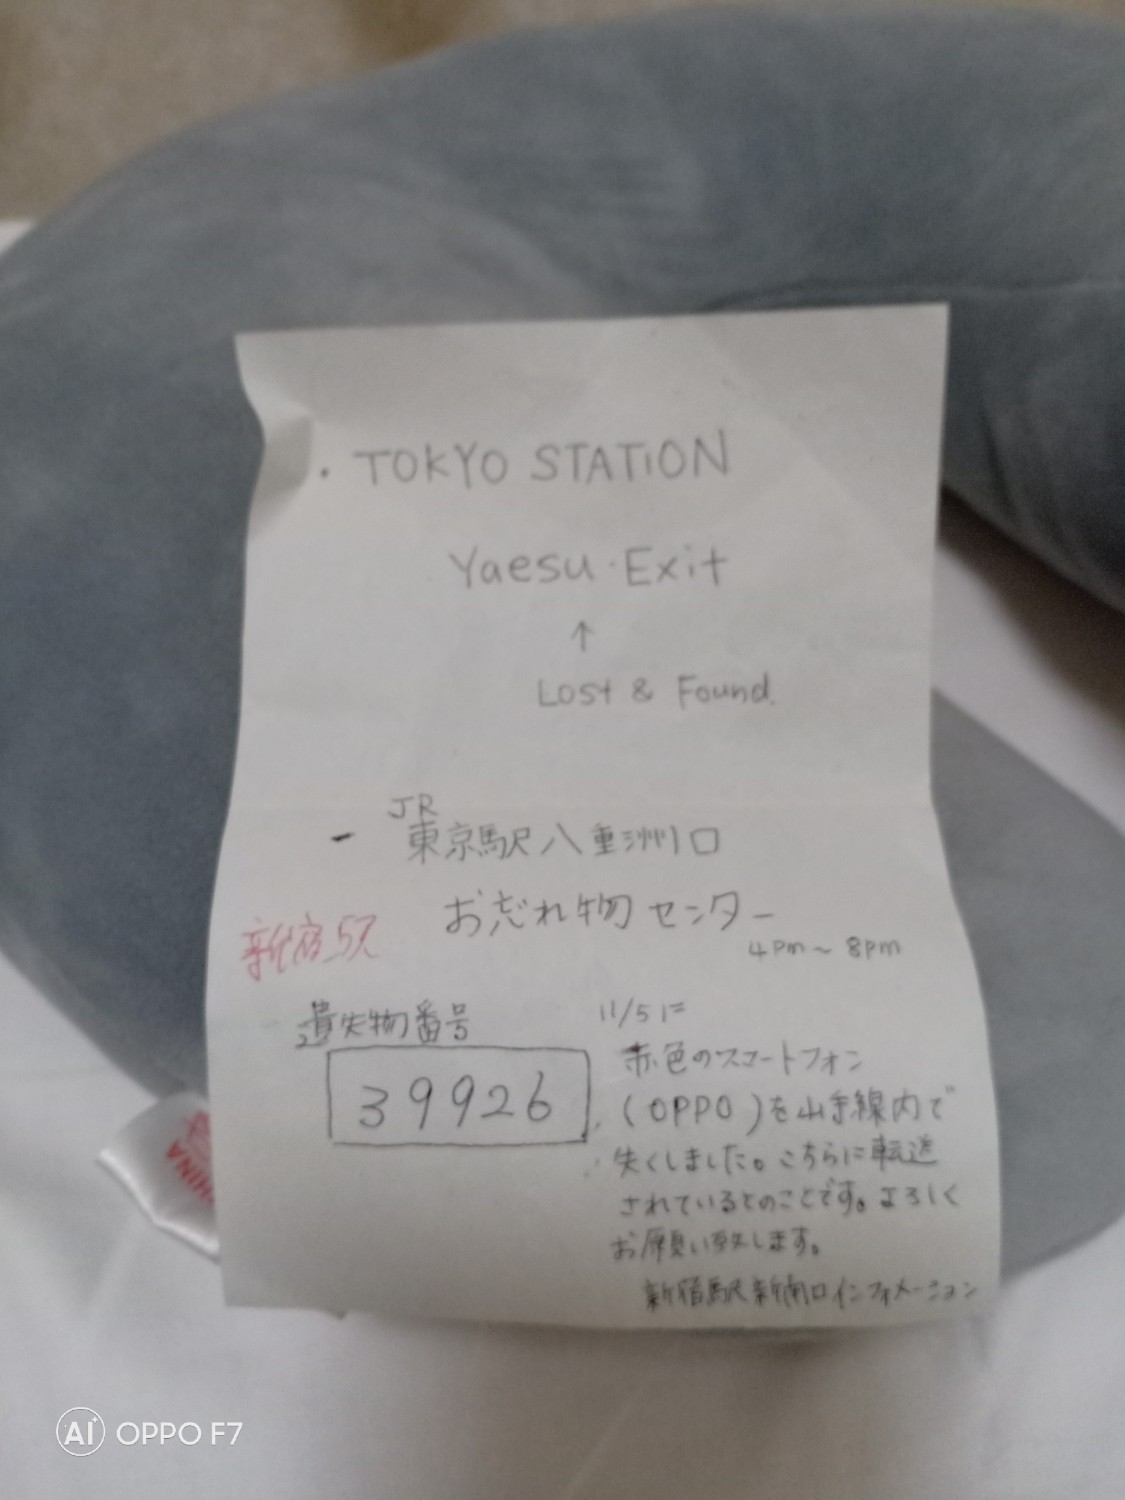 ・TOKYO STATION
Yaesu・Exit
↑
Lost & Found.
JR
- 東京駅八重洲口
お忘れ物センター
新宿駅
4pm〜8pm
遺失物番号
39926
11/5に
赤色のスマートフォン
(OPPO)を山手線内で
失くしました。こちらに転送
されているとのことです。よろしく
お願い致します。
新宿駅新南口インフォメーション
CHINA
AI OPPO F7